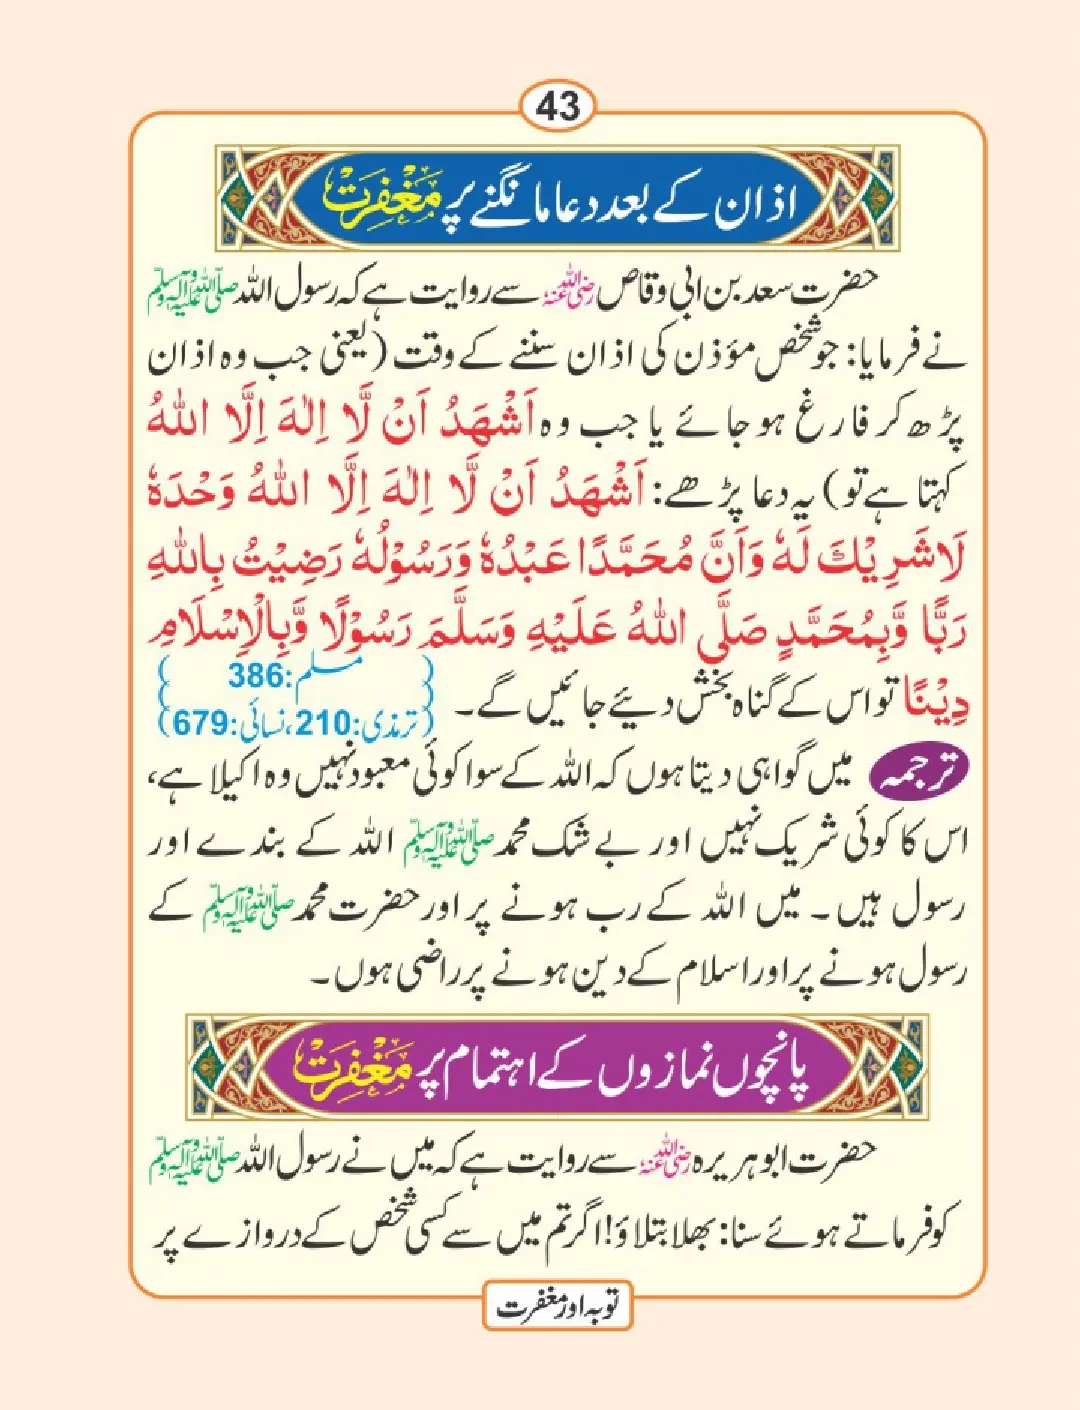 43
اذان کے بعد دعا مانگنے پر مغفرت
حضرت سعد بن ابی وقاص رضی اللہ عنہ سے روایت ہے کہ رسول اللہ صلی اللہ علیہ وآلہ وسلم
نے فرمایا: جو شخص مؤذن کی اذان سننے کے وقت (یعنی جب وہ اذان
پڑھ کر فارغ ہو جائے یا جب وہ اَشْهَدُ اَنْ لَّا اِلٰهَ اِلَّا اللهُ
کہتا ہے تو) یہ دعا پڑھے: اَشْهَدُ اَنْ لَّا اِلٰهَ اِلَّا اللهُ وَحْدَهٗ
لَاشَرِيْكَ لَهٗ وَاَنَّ مُحَمَّدًا عَبْدُهٗ وَرَسُوْلُهٗ رَضِيْتُ بِاللهِ
رَبًّا وَّبِمُحَمَّدٍ صَلَّى اللهُ عَلَيْهِ وَسَلَّمَ رَسُوْلًا وَّبِالْاِسْلَامِ
دِيْنًا تو اس کے گناہ بخش دیئے جائیں گے۔
(مسلم:386
ترمذی:210، نسائی:679)
ترجمہ میں گواہی دیتا ہوں کہ اللہ کے سوا کوئی معبود نہیں وہ اکیلا ہے،
اس کا کوئی شریک نہیں اور بے شک محمد صلی اللہ علیہ وآلہ وسلم اللہ کے بندے اور
رسول ہیں۔ میں اللہ کے رب ہونے پر اور حضرت محمد صلی اللہ علیہ وآلہ وسلم کے
رسول ہونے پر اور اسلام کے دین ہونے پر راضی ہوں۔
پانچوں نمازوں کے اہتمام پر مغفرت
حضرت ابو ہریرہ رضی اللہ عنہ سے روایت ہے کہ میں نے رسول اللہ صلی اللہ علیہ وآلہ وسلم
کو فرماتے ہوئے سنا: بھلا بتلاؤ! اگر تم میں سے کسی شخص کے دروازے پر
توبہ اور مغفرت